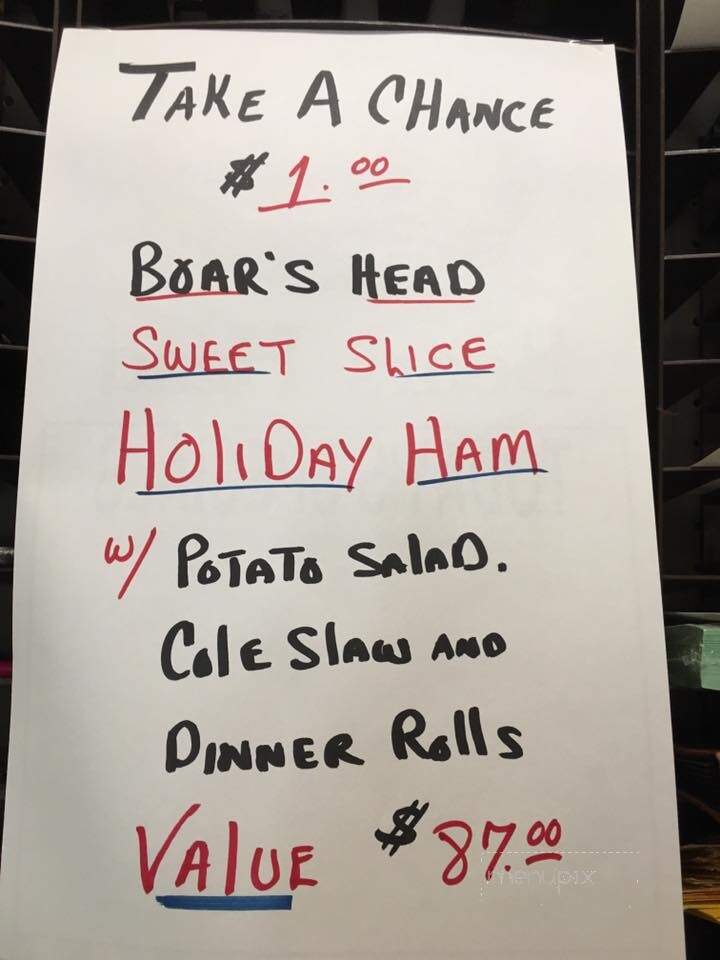 TAKE A CHANCE
$1.00
BOAR'S HEAD
SWEET SLICE
HOLIDAY HAM
w/ POTATO SALAD.
COLE SLAW AND
DINNER ROLLS
VALUE $87.00
menupix